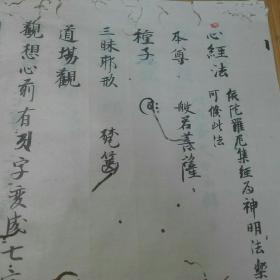 心經法
依陀羅尼集經為神明法樂
可修此法
本尊 般若菩薩
種子
三昧耶形 梵篋
道場觀
觀想心前有 字變成七